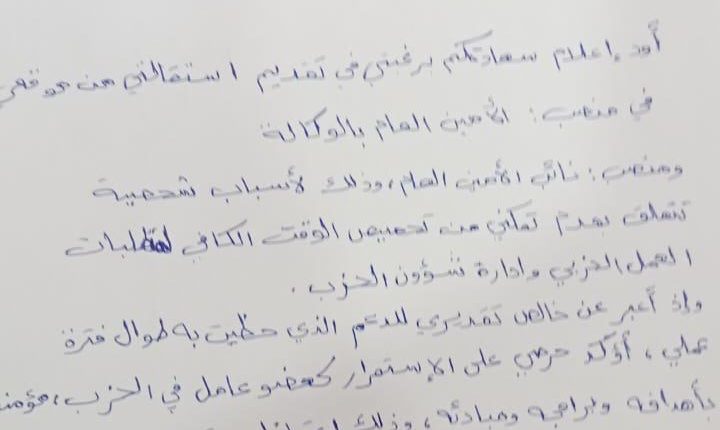 أود إعلام سعادتكم برغبتي في تقديم استقالتي من موقعي
في منصب: الأمين العام بالوكالة
ومنصب: نائب الأمين العام، وذلك لأسباب شخصية
تتعلق بعدم تمكني من تخصيص الوقت الكافي لمتطلبات
العمل الحزبي وإدارة شؤون الحزب.
وإذ أعبر عن خالص تقديري للدعم الذي حظيت به طوال فترة
عملي، أؤكد حرصي على الإستمرار كعضو عامل في الحزب، مؤمناً
بأهدافه وبرامجه ومبادئه، وذلك